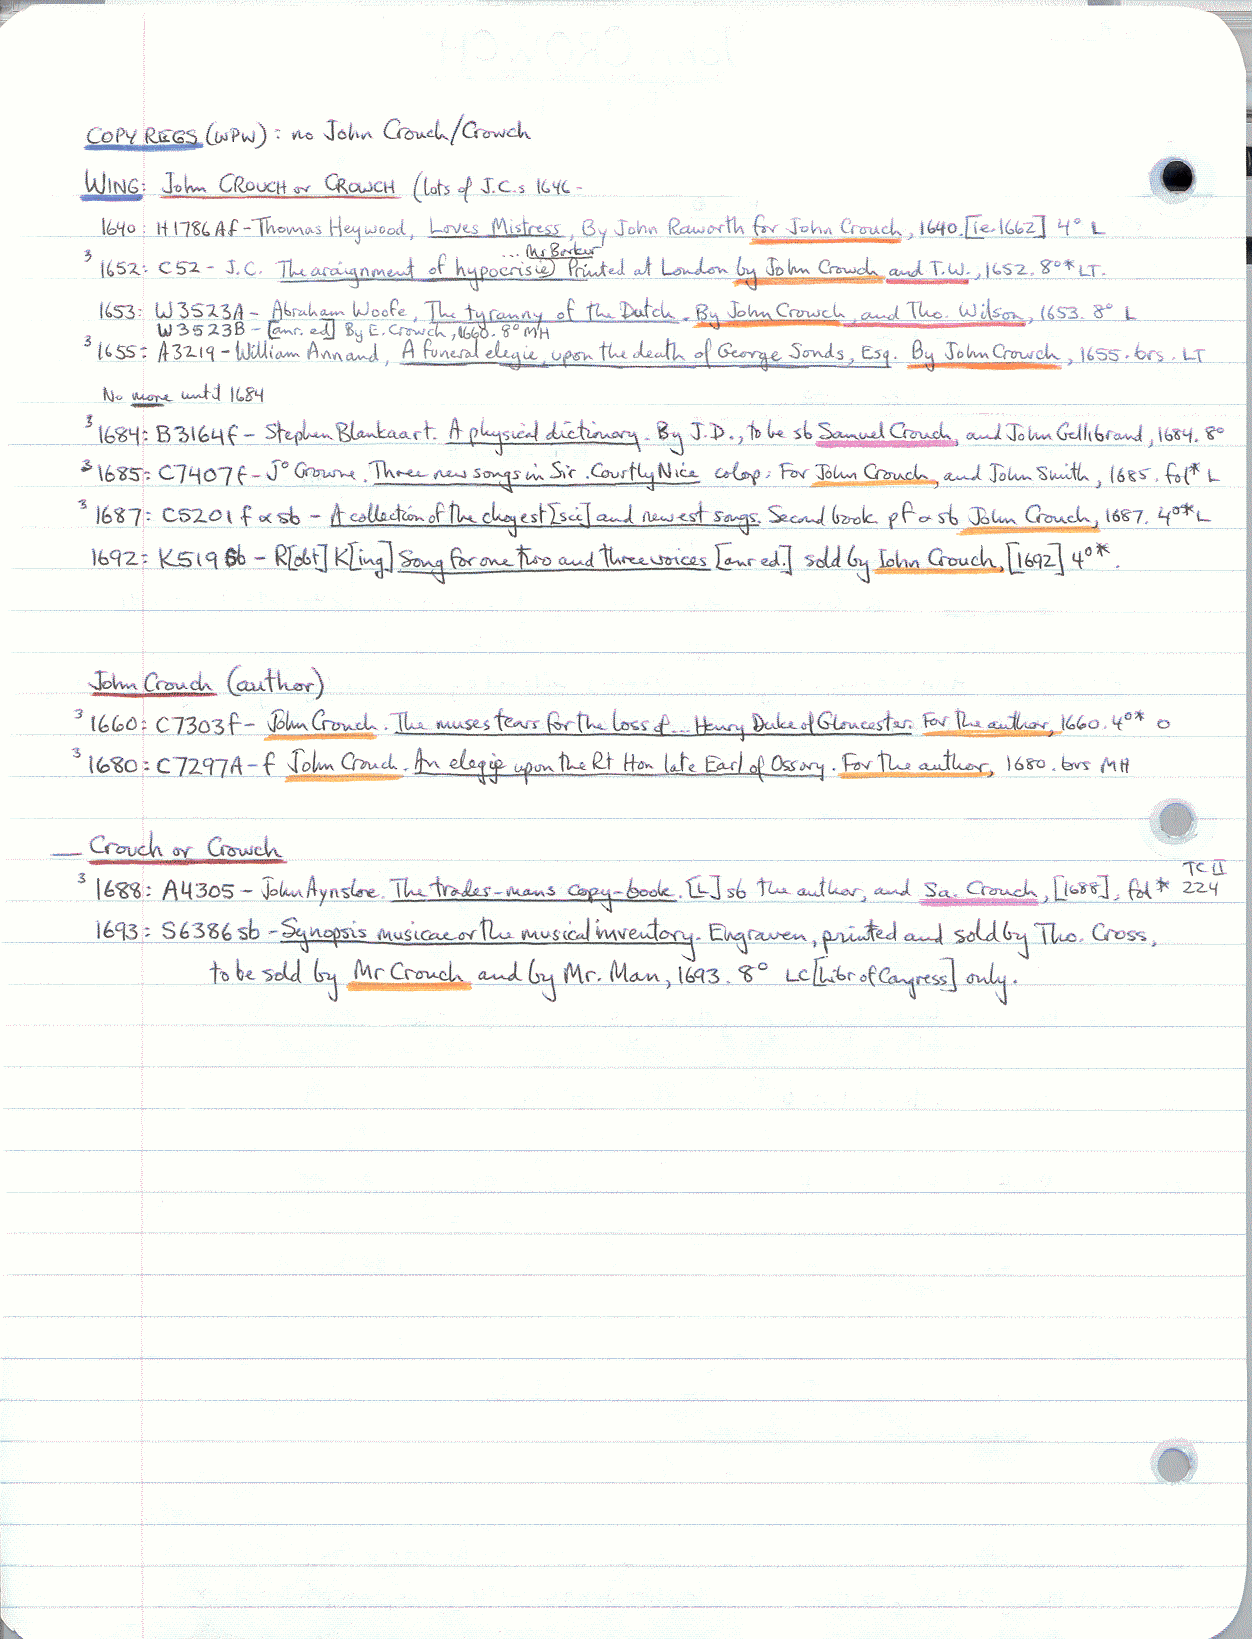 COPY REGS (WPW): no John Crouch/Crowch
WING: John CROUCH or CROWCH (lots of J.C.s 1646 -
1640: H1786Af - Thomas Heywood, Loves Mistress, By John Raworth for John Crouch, 1640. [ie. 1662] 4° L
... Mr Barker
3 1652: C52 - J.C. The araignment of hypocrisie) Printed at London by John Crowch and T.W., 1652. 8°* LT.
1653: W3523A - Abraham Woofe, The tyranny of the Dutch. By John Crowch, and Tho. Wilson, 1653. 8° L
W3523B - [anr. ed] By E. Crowch, 1660. 8° MH
3 1655: A3219 - William Annand, A funeral elegie, upon the death of George Sonds, Esq. By John Crowch, 1655. brs. LT
No more until 1684
3 1684: B3164f - Stephen Blankaart. A physical dictionary. By J.D., to be sb Samuel Crouch, and John Gellibrand, 1684. 8°
3 1685: C7407f - J° Crowne. Three new songs in Sir Courtly Nice colop: For John Crouch, and John Smith, 1685. fol* L
3 1687: C5201 f & sb - A collection of the choyest [sic] and newest songs. Second book pf & sb John Crouch, 1687. 4°* L
1692: K519 sb - R[obt] K[ing] Song for one two and three voices [anr ed.] sold by John Crouch, [1692] 4°*.
John Crouch (author)
3 1660: C7303f - John Crouch. The muses tears for the loss of ... Henry Duke of Gloucester. For the author, 1660. 4°* O
3 1680: C7297A-f John Crouch. An elegie upon the Rt Hon late Earl of Ossory. For the author, 1680. brs MH
— Crouch or Crowch
TC II
3 1688: A4305 - John Aynsloe. The trades-mans copy-book. [L] sb the author, and Sa. Crouch, [1688]. fol* 224
1693: S6386 sb - Synopsis musicae or the musical inventory. Engraven, printed and sold by Tho. Cross,
to be sold by Mr Crouch and by Mr. Man, 1693. 8° LC [Libr of Congress] only.